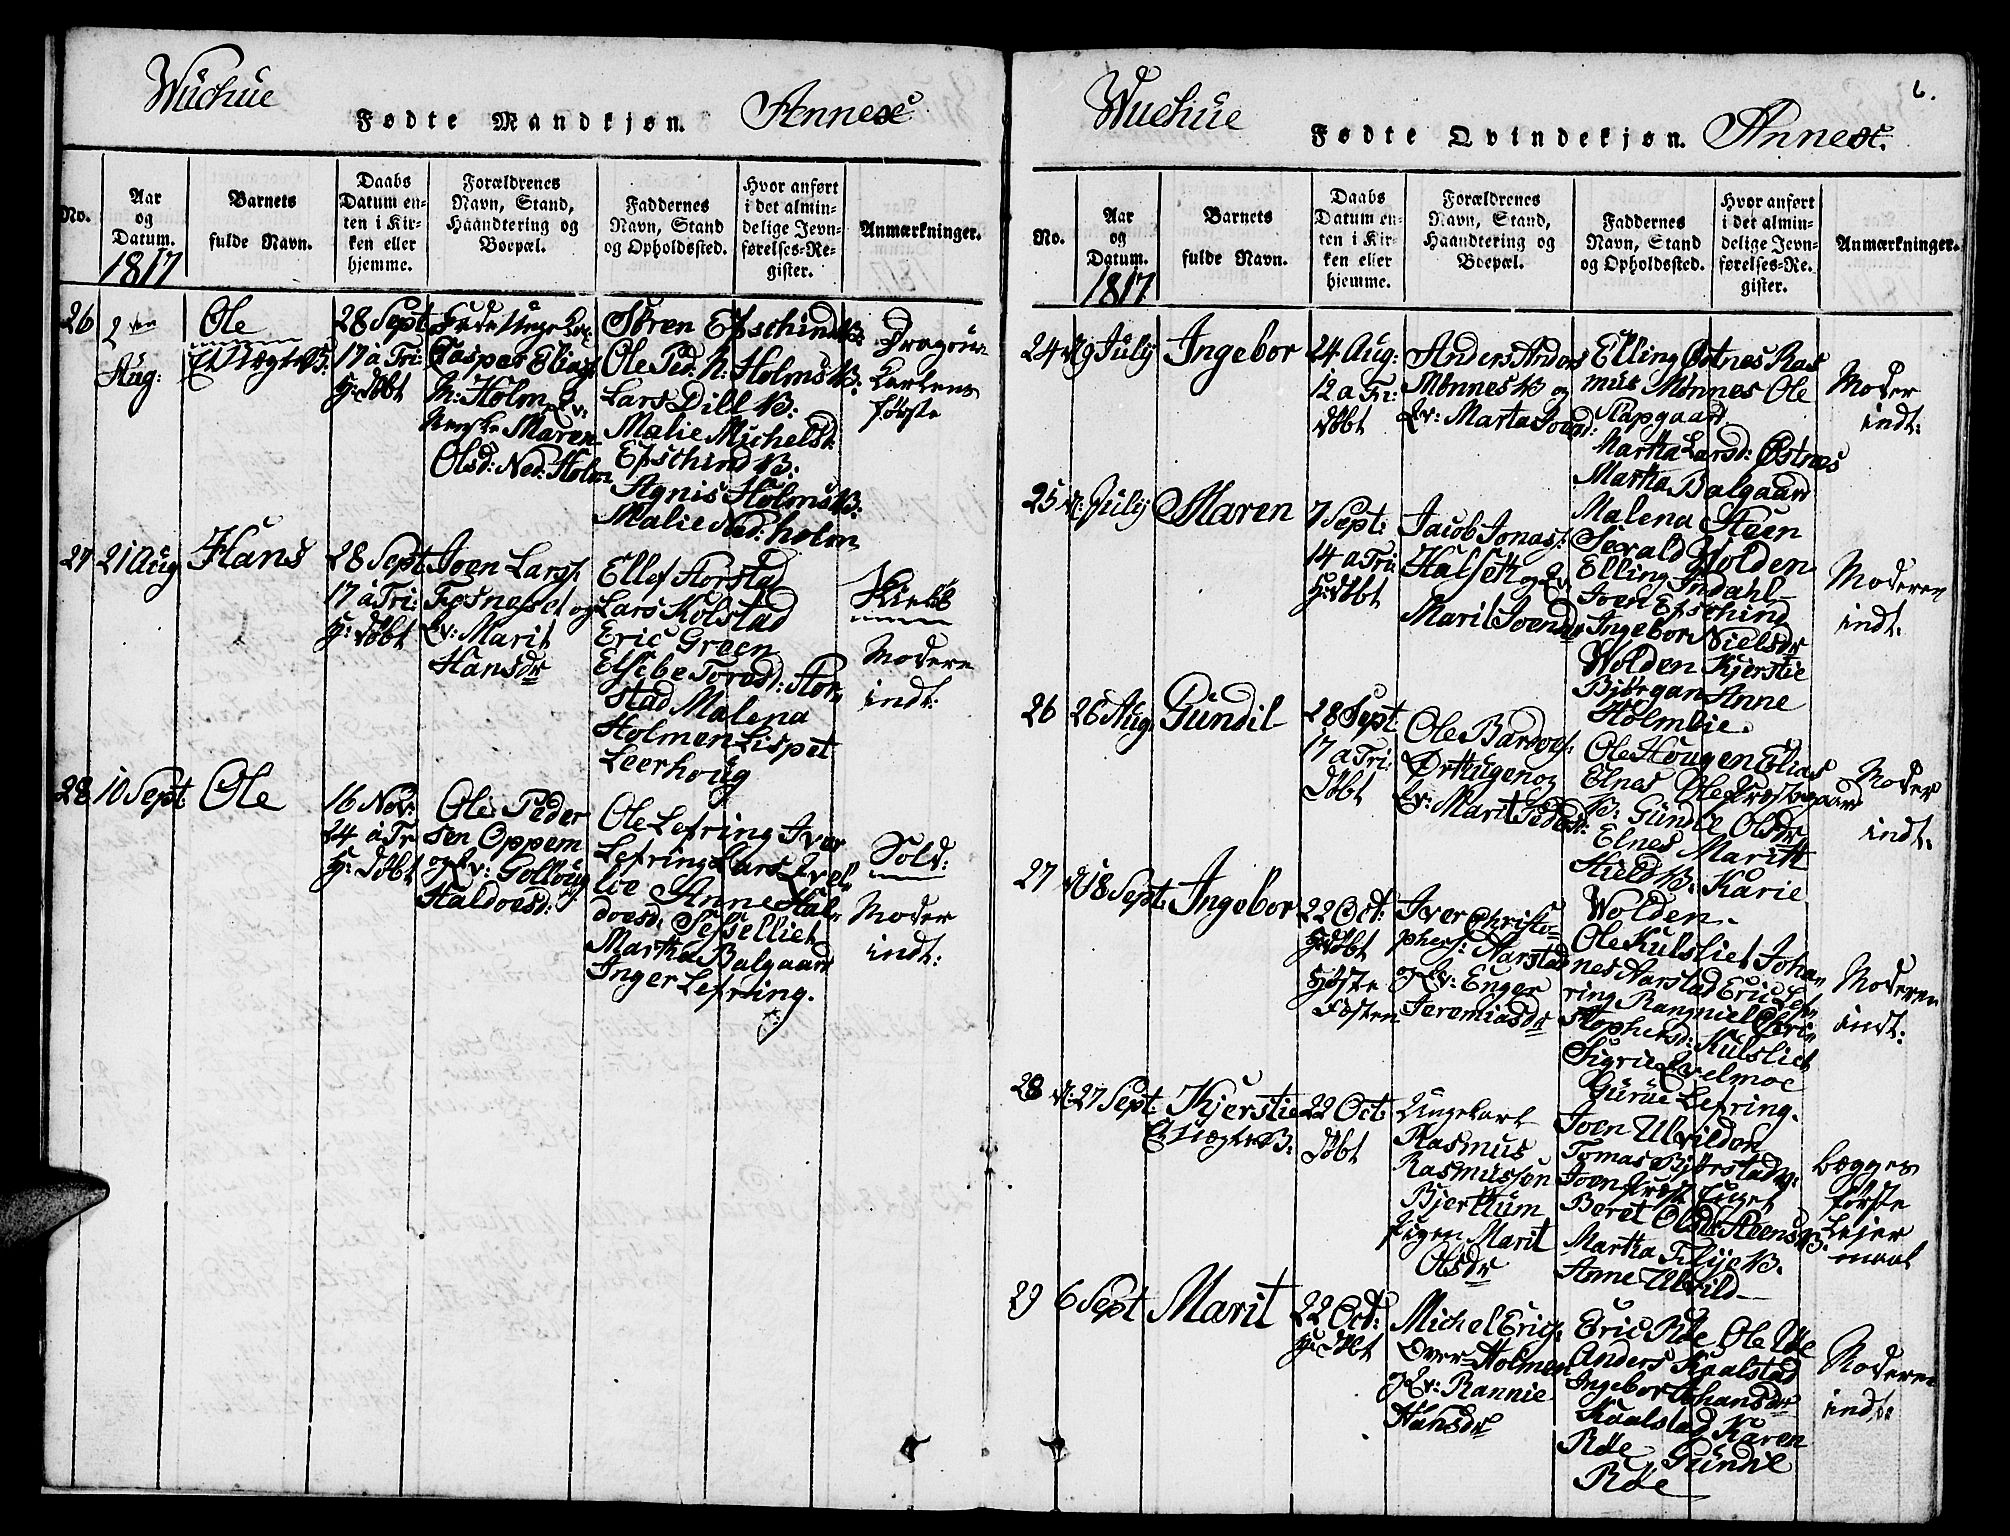 Wuchue
Fødte Mandkjøn.
Annexe
No.
Aar
og
Datum.
1817
Barnets
fulde Navn.
Daabs
Datum en-
ten i Kir-
ken eller
hjemme.
Forældrenes
Navn, Stand,
Haandtering og
Boepæl.
Faddernes
Navn, Stand
og Opholdssted.
Hvor anført
i det almin-
delige Jevn-
førelses-Re-
gister.
Anmærkninger.
26
2den
Aug:
Ole
28 Sept
17 a Tri:
Casper
Holm
Maren
Olsd: Ned: Holm
Søren
Ole Ped: N: Holms
Lars Dill
Malie Michelsd:
Agnis Holms
Malie Ned: holm
Dragoun
Karlens
første
27
21 Aug
Hans
28 Sept
17 a Tri:
H: døbt
Joen Lars:
og
Marit
Hansdr
Ellef Horstad
Lars Kolstad
Eric Green
Elsebe Torsd: Hor-
stad Malena
Holmen Lispet
Leerhoug
Modere
indt:
28
10 Sept
Ole
16 Nov:
24 a Tr
H: døbt
Ole Peder
sen Oppem
og Qv: Golloug
Haldoesd:
Ole Lefring Iver
Lefring Lars Qvel-
loe Anne Hal-
doesd: Sesselliet
Martha Balgaard
Inger Lefring.
Sold:
Moder
indt:
Wuchue
Fødte Qvindekjøn.
Annex.
6.
No.
Aar
og
Datum.
1817
Barnets
fulde Navn.
Daabs
Datum en-
ten i Kir-
ken eller
hjemme.
Forældrenes
Navn, Stand,
Haandtering og
Boepæl.
Faddernes
Navn, Stand
og Opholdssted.
Hvor anført
i det almin-
delige Jevn-
førelses-Re-
gister.
Anmærkninger.
24
July
Ingebor
24 Aug:
12 a Tri:
døbt
Anders Anders
Mønnes og
Qv: Marta Joend:
Elling Østnes Ras
mus Mønnes Ole
Slapgaard
Martha Larsd: Østnes
Martha Balgaard
Moder
indt:
25
July
Maren
7 Sept:
14 a Tri:
H: døbt
Jacob Jonas:
Halseth og Qv
Marit Joendr
Malena Steen
Sevald Wolden
Elling Indahl
Joen
Ingebor Nielsdr
Wolden Kjerstie
Bjørgan Anne
Holmlie.
Moderen
indt:
26
26 Aug:
Gundil
28 Sept
17 a Tri:
døbt
Ole
Ørthugen og
Qv: Marit Pedersd:
Ole Hougen Elias
Elnes Ole Præstegaar
B: Gundil Olsdr
Elnes Maritt
Hield B: Karie
Wolden.
Moder
indt:
27
18 Sept:
Ingebor
22 Oct:
H: døbt
Iver Christo-
phers: Aarstad
og Qv: Enger
Jeremiasdr
Ole Kulsliet Joha-
nes Aarstad Eric Lef-
ring Rangniel Chri-
stophersd: Kulsliet
Sigrie Qvelmoe
Gurue Lefring.
Moderen
indt:
28
27 Sept:
Kjerstie
22 Oct:
døbt
Ungekarl
Rasmus
Rasmussøn
Bjerthum
Pigen Marit
Olsdr
Joen Ulvilden
Tomas Bjørstad
Joen
Beret Olsdr Steens
Martha Tilije B.
Anne Ulvild
begges
første
Leier
maal
29
6 Sept
Marit
22 Oct:
H: døbt
Michel Erics:
Over-Holmen
og Qv: Rannie
Hansdr
Eric Røe Ole Røe
Anders Kaalstad
Ingebor Johansdr
Kaalstad Karen
Røe Gundil
Røe
Moderen
indt: